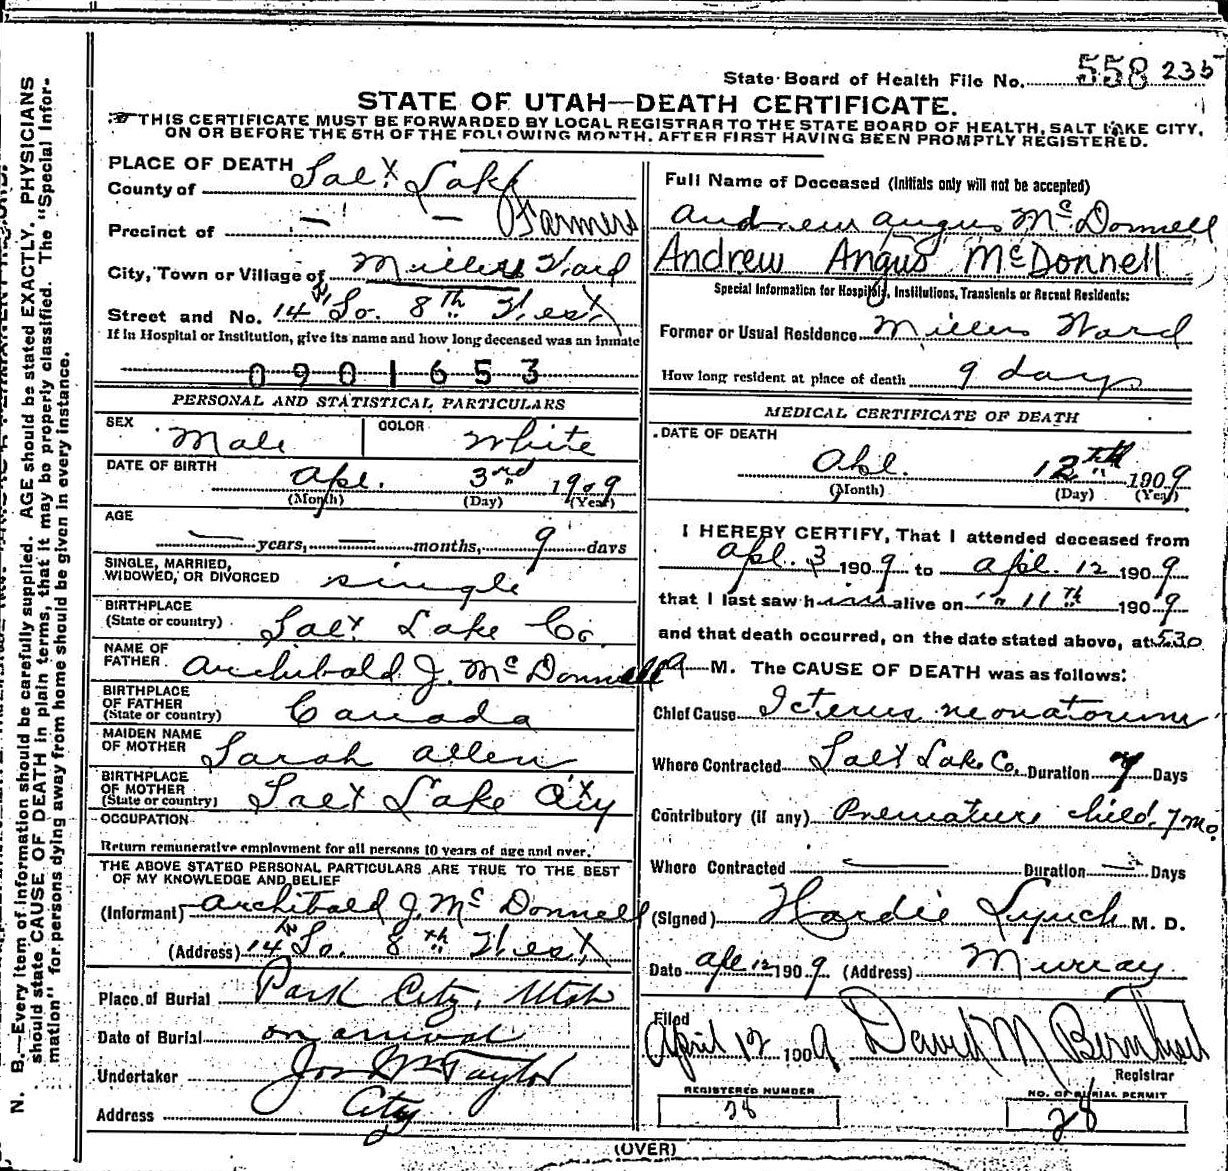 State Board of Health File No. 558 235
STATE OF UTAH—DEATH CERTIFICATE.
THIS CERTIFICATE MUST BE FORWARDED BY LOCAL REGISTRAR TO THE STATE BOARD OF HEALTH, SALT LAKE CITY,
ON OR BEFORE THE 5TH OF THE FOLLOWING MONTH, AFTER FIRST HAVING BEEN PROMPTLY REGISTERED.
PLACE OF DEATH
County of Salt Lake
Precinct of — — Farmers
City, Town or Village of Millers Ward
Street and No. 14th So. 8th West
If in Hospital or Institution, give its name and how long deceased was an inmate
0901653
PERSONAL AND STATISTICAL PARTICULARS
SEX Male COLOR White
DATE OF BIRTH
Apl. 3rd 1909
(Month) (Day) (Year)
AGE
— years, — months, 9 days
SINGLE, MARRIED,
WIDOWED, OR DIVORCED single
BIRTHPLACE
(State or country) Salt Lake Co.
NAME OF
FATHER Archibald J. McDonnell
BIRTHPLACE
OF FATHER
(State or country) Canada
MAIDEN NAME
OF MOTHER Sarah Allen
BIRTHPLACE
OF MOTHER
(State or country) Salt Lake City
OCCUPATION
Return remunerative employment for all persons 10 years of age and over.
THE ABOVE STATED PERSONAL PARTICULARS ARE TRUE TO THE BEST
OF MY KNOWLEDGE AND BELIEF
(Informant) Archibald J. McDonnell
(Address) 14th So. 8th West
Place of Burial Park City, Utah
Date of Burial on arrival
Undertaker Jos Wm Taylor
Address City
Full Name of Deceased (Initials only will not be accepted)
Andrew Angus McDonnell
Andrew Angus McDonnell
Special Information for Hospitals, Institutions, Transients or Recent Residents:
Former or Usual Residence Millers Ward
How long resident at place of death 9 days
MEDICAL CERTIFICATE OF DEATH
DATE OF DEATH
Apl. 12th 1909
(Month) (Day) (Year)
I HEREBY CERTIFY, That I attended deceased from
Apl. 3 1909 to Apl. 12 1909
that I last saw him alive on " 11th 1909
and that death occurred, on the date stated above, at 5.30
a M. The CAUSE OF DEATH was as follows:
Chief Cause Icterus neonatorum
Where Contracted Salt Lake Co. Duration 7 Days
Contributory (if any) Premature child. 7 mo.
Where Contracted — Duration — Days
(Signed) Hardie Lynch M. D.
Date Apl 12 1909 (Address) Murray
Filed
April 12 1909 David M Bernhisel
Registrar
REGISTERED NUMBER
28
NO. OF BURIAL PERMIT
28
(OVER)
N. B.—Every item of information should be carefully supplied. AGE should be stated EXACTLY. PHYSICIANS
should state CAUSE OF DEATH in plain terms, that it may be properly classified. The "Special Infor-
mation" for persons dying away from home should be given in every instance.